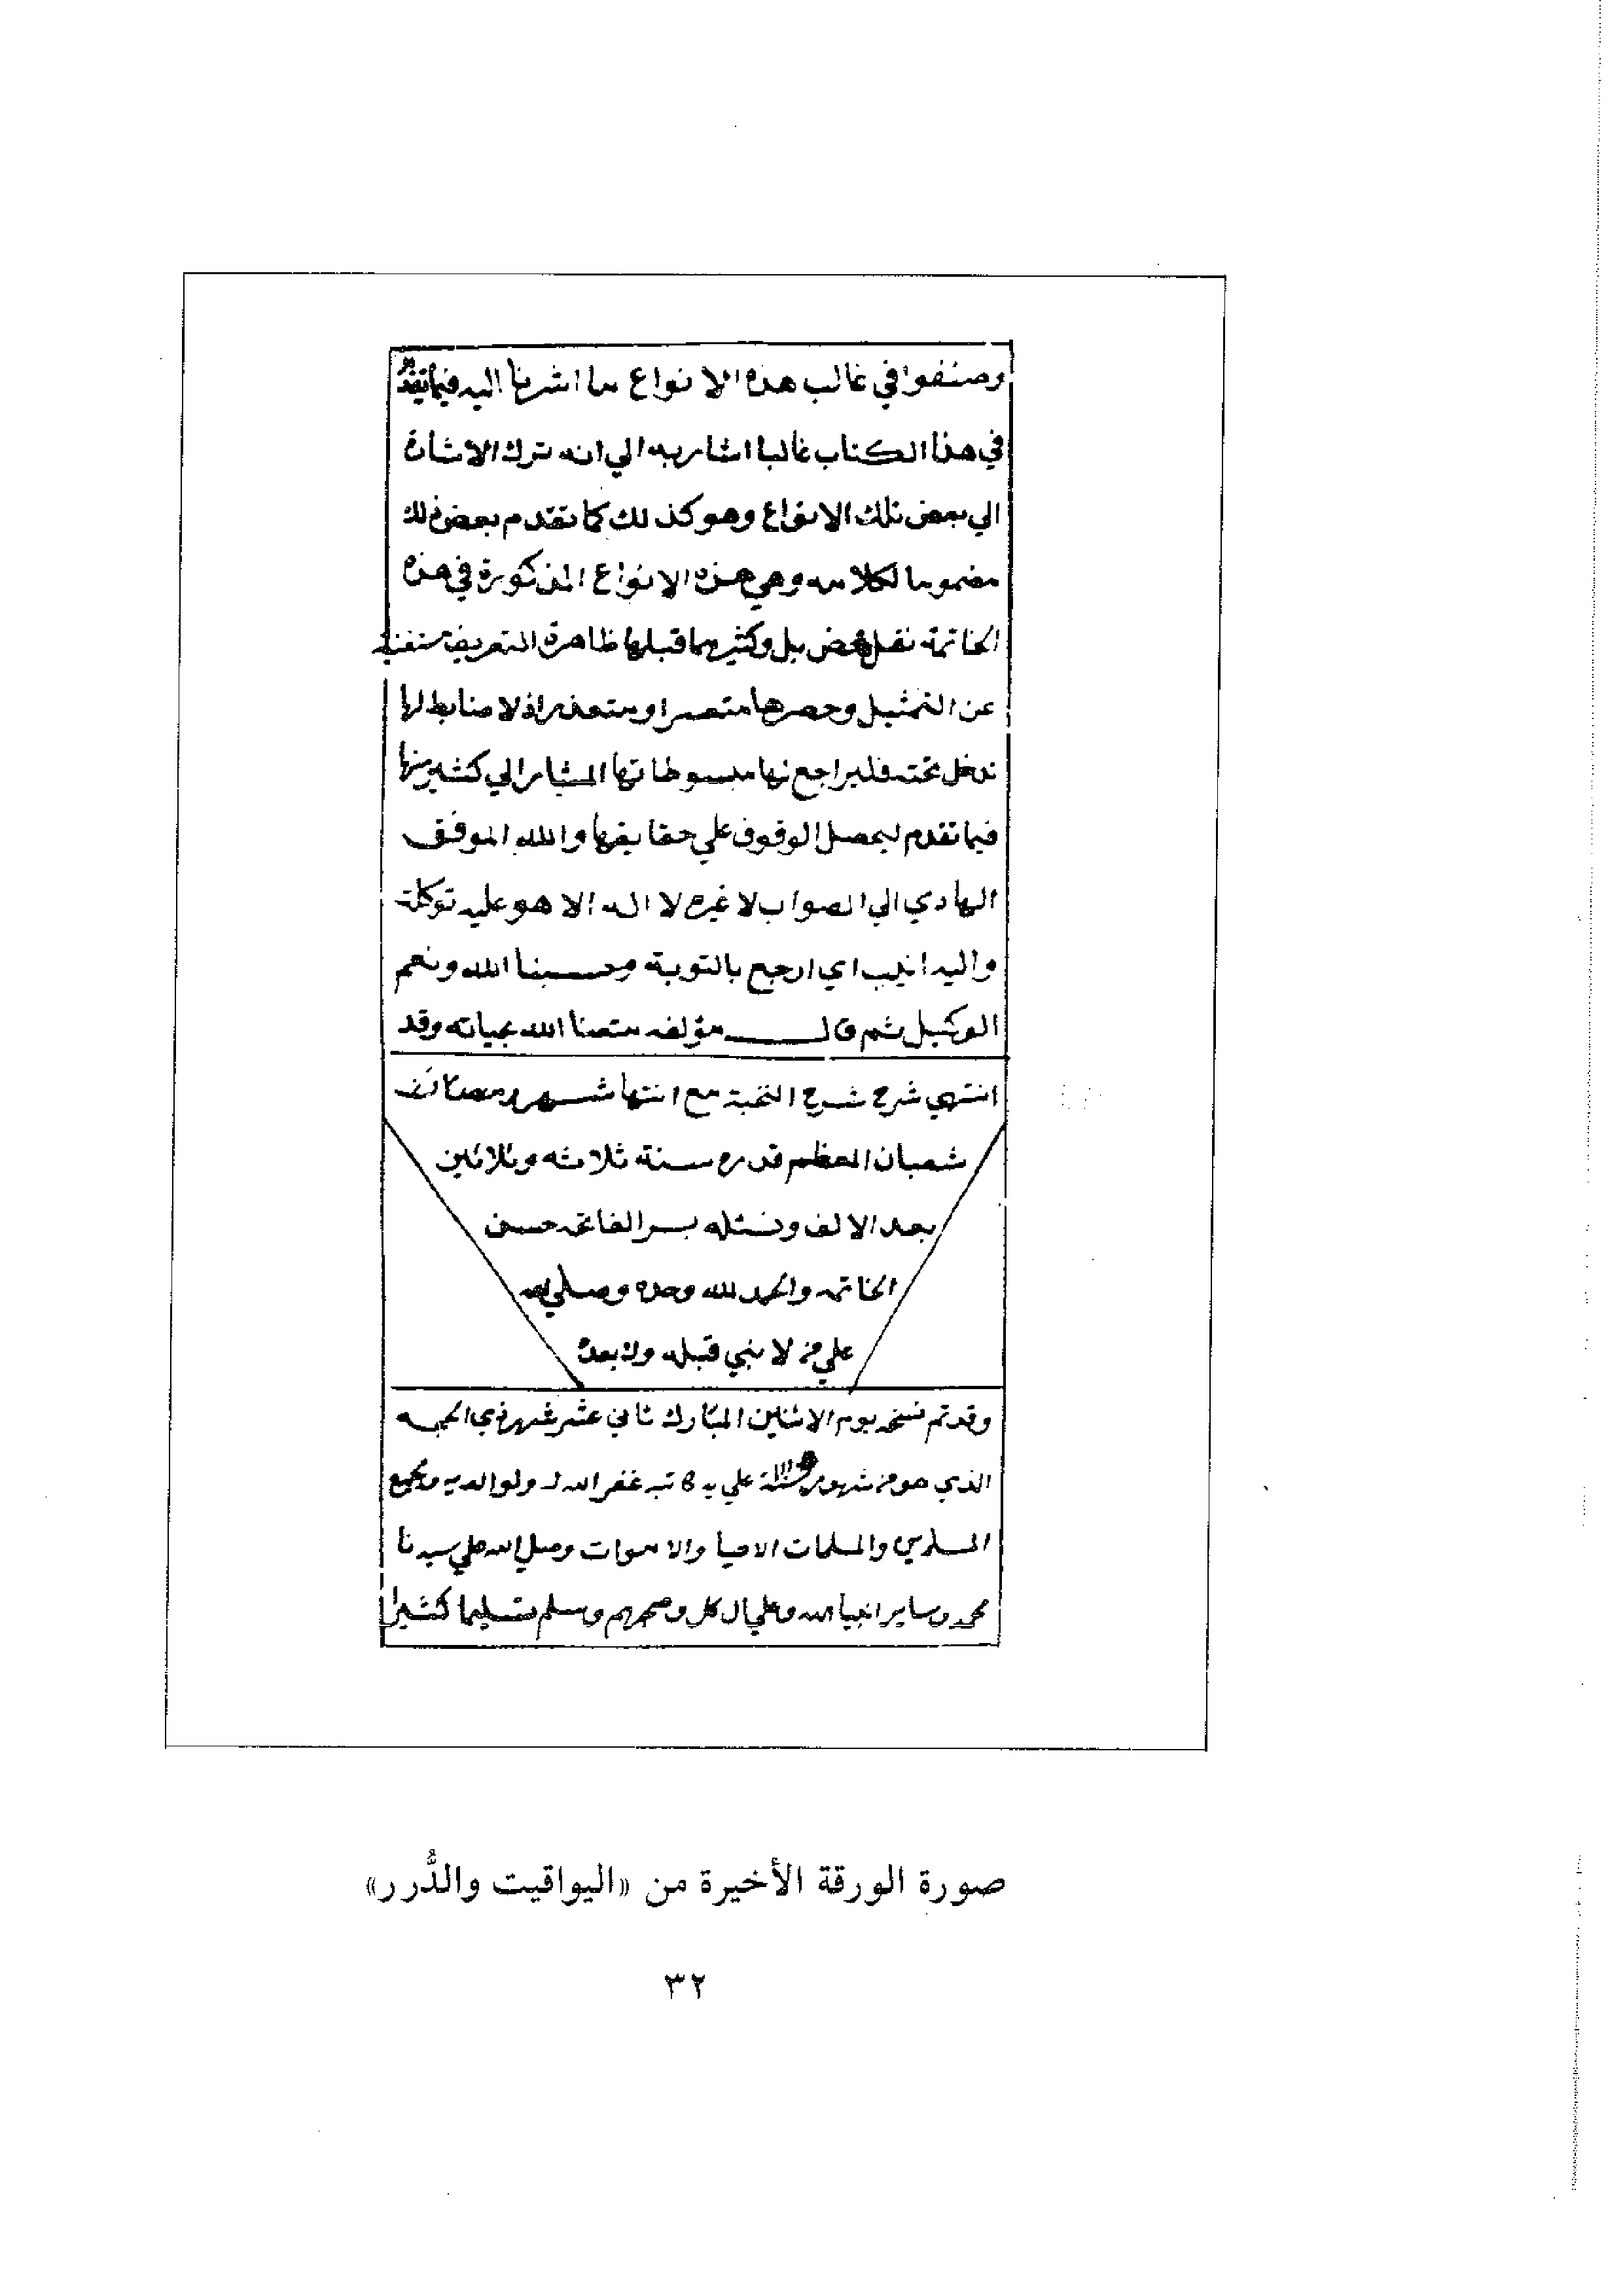 وصنفوا في غالب هذه الانواع ما اشرنا اليه فيما تقدم
في هذا الكتاب غالبا اشار به الي انه ترك الاشارة
الي بعض تلك الانواع وهو كذلك كما تقدم بعض ذلك
مضموما لكلامه وهي هذه الانواع المذكورة في هذه
الخاتمة نقل محض بل وكثير مما قبلها ظاهرة التعريف مستغنية
عن التمثيل وحصرها متعسر او متعذر اذ لا ضابط لها
تدخل تحته فليراجع لها مبسوطاتها المشار الي كثير منها
فيما تقدم ليحصل الوقوف علي حقايقها والله الموفق
الهادي الي الصواب لا غيره لا اله الا هو عليه توكلت
واليه انيب اي ارجع بالتوبة وحسبنا الله ونعم
الوكيل ثم قال مؤلفه متعنا الله بحياته وقد
انتهي شرح شرح النخبة مع انتها شهر رمضان
شعبان المعظم قدره سنة ثلاثه وثلاثين
بعد الالف ونسئله بسر الفاتحه حسن
الخاتمه والحمد لله وحده وصلي الله
علي من لا نبي قبله ولا بعده
وقد تم نسخه يوم الاثنين المبارك ثاني عشر شهر ذي الحجه
الذي هو من شهور سنة علي يد كاتبه غفر الله له ولوالديه ولجميع
المسلمين والمسلمات الاحيا والاموات وصلي الله علي سيدنا
محمد وساير انبيا الله وعلي ال كل وصحبهم وسلم تسليما كثيرا
صورة الورقة الأخيرة من «اليواقيت والدُّرر»
٣٢